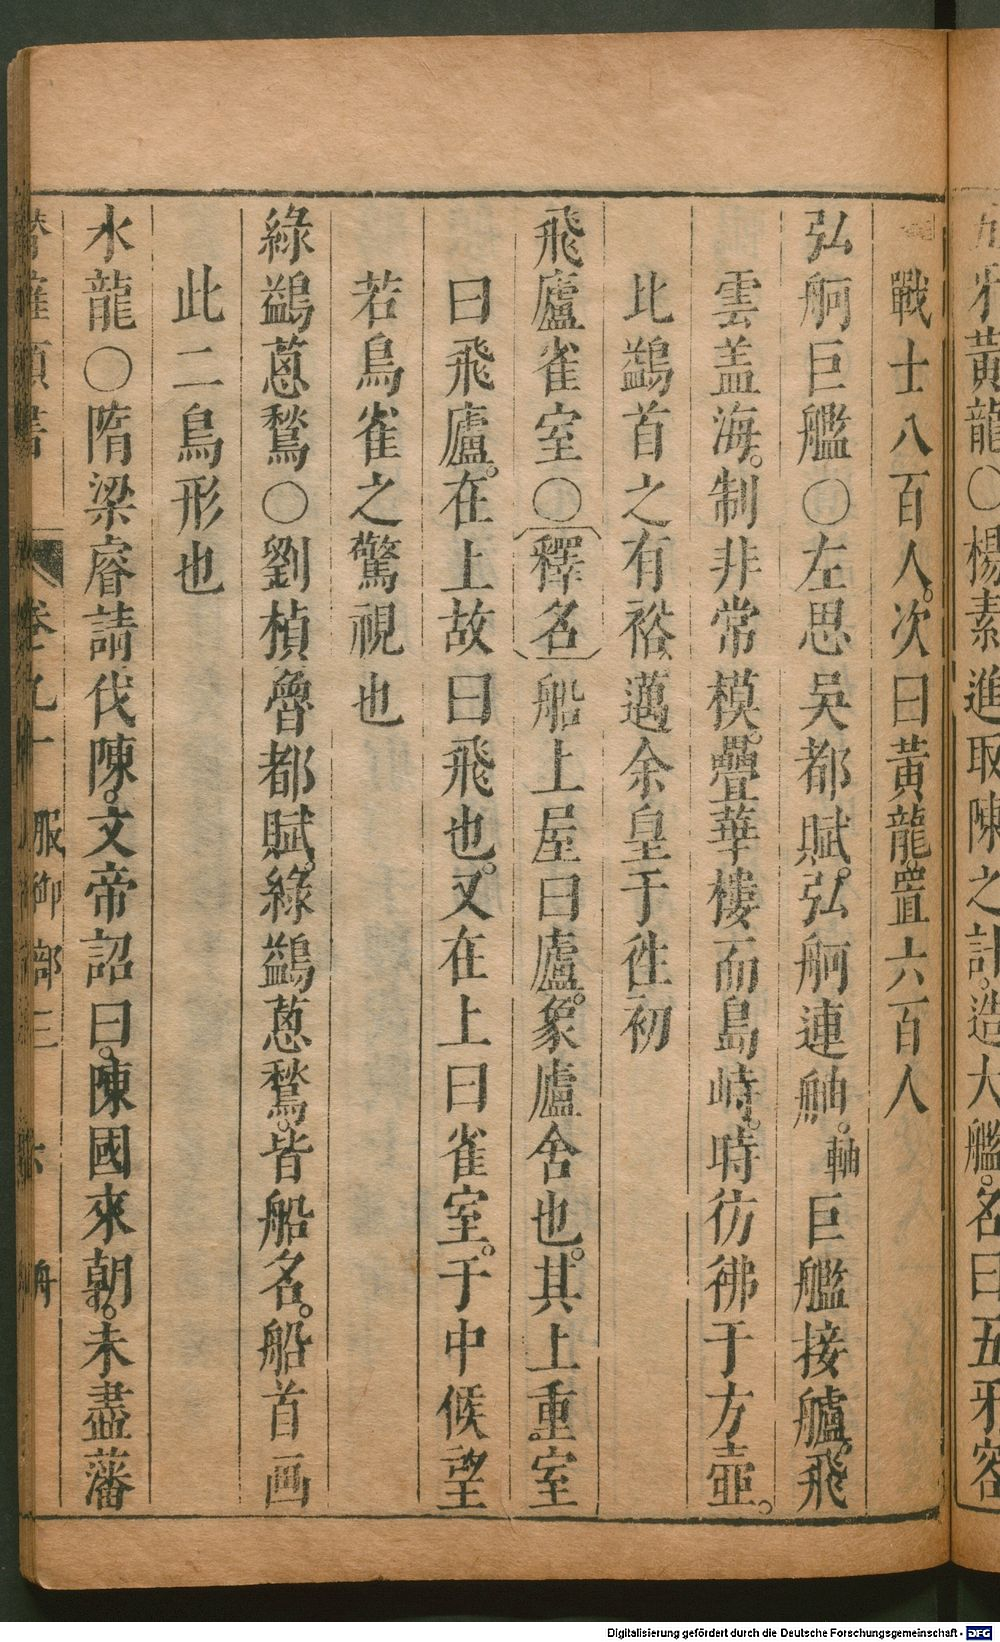 黃龍〇楊素進取陳之計。造大艦。名曰五牙容
戰士八百人。次曰黃龍。置六百人
弘舸巨艦〇左思吳都賦。弘舸連舳。軸巨艦接艫。飛
雲盖海。制非常模。疊華樓而島峙。時彷彿于方壺。
比鷁首之有裕。邁余皇于徃初
飛廬雀室〇〔釋名〕船上屋曰廬。象廬舍也。其上重室
曰飛廬。在上故曰飛也。又在上曰雀室。于中候望
若鳥雀之驚視也
綠鷁蔥鶖〇劉楨魯都賦。綠鷁蔥鶖。皆船名。船首画
此二鳥形也
水龍〇隋梁睿請伐陳。文帝詔曰。陳國來朝。未盡藩
卷 服御部三 舟
Digitalisierung gefördert durch die Deutsche Forschungsgemeinschaft - DFG